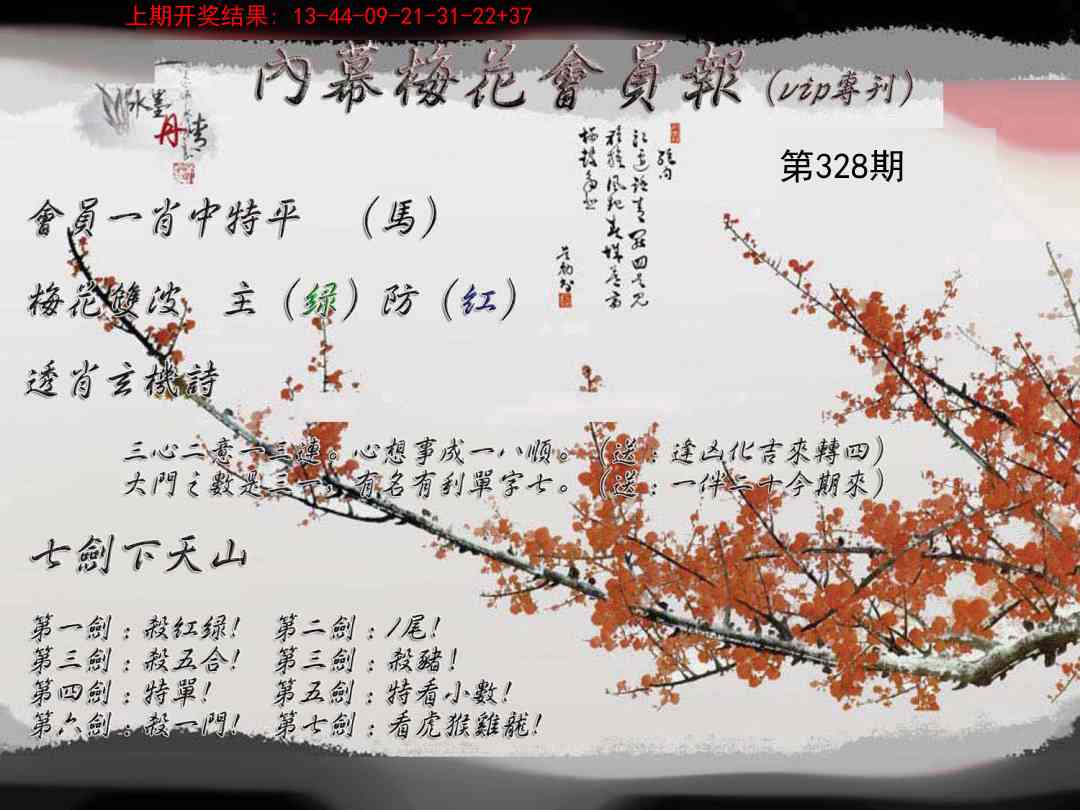 上期开奖结果: 13-44-09-21-31-22+37
內幕梅花會員報(vip專刊)
水墨丹情
第328期
會員一肖中特平 (馬)
梅花雙波 主(绿)防(红)
透肖玄機詩
三心二意一三連。心想事成一八順。(送:逢凶化吉來轉四)
大門之數是三一,有名有利單字七。(送:一伴二十今期來)
七劍下天山
第一劍:殺红绿! 第二劍:1尾!
第三劍:殺五合! 第三劍:殺豬!
第四劍:特單! 第五劍:特看小數!
第六劍:殺一門! 第七劍:看虎猴雞龍!